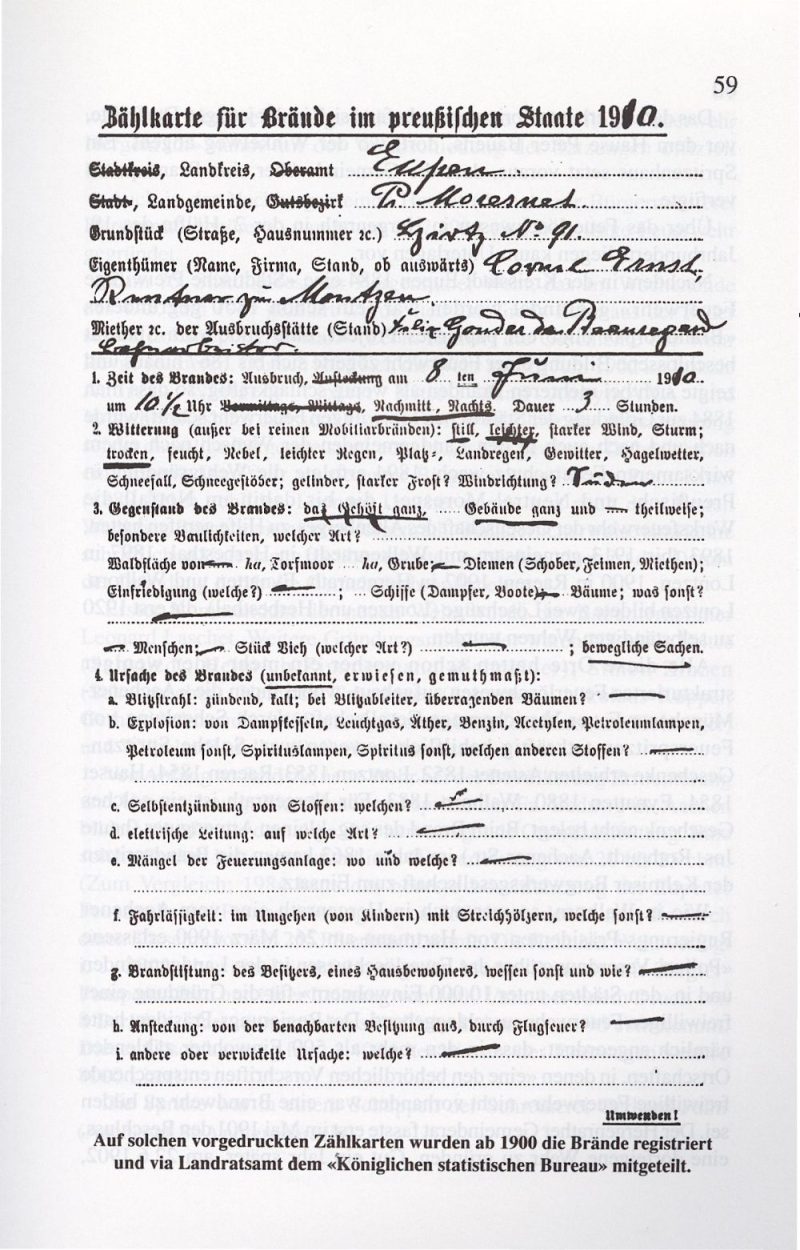 59
Zählkarte für Brände im preußischen Staate 1910.
Stadtkreis, Landkreis, Oberamt Eupen
Stadt-, Landgemeinde, Gutsbezirk Pr. Moresnet
Grundstück (Straße, Hausnummer ꝛc.) No 91.
Eigenthümer (Name, Firma, Stand, ob auswärts) Cornel Ernst,
Rentner zu Montzen.
Miether ꝛc. der Ausbruchsstätte (Stand) Felix
1. Zeit des Brandes: Ausbruch, Ansteckung am 8 ten Juni 1910.
um 10 ½ Uhr Vormittags, Mittags, Nachmitt., Nachts. Dauer 3 Stunden.
2. Witterung (außer bei reinen Mobiliarbränden): still, leichter, starker Wind, Sturm;
trocken, feucht, Nebel, leichter Regen, Platz-, Landregen, Gewitter, Hagelwetter,
Schneefall, Schneegestöber; gelinder, starker Frost? Windrichtung? Süden
3. Gegenstand des Brandes: das Gehöft ganz, Gebäude ganz und — theilweise;
besondere Baulichkeiten, welcher Art?
Waldfläche von — ha, Torfmoor ha, Grube; — Diemen (Schober, Feimen, Miethen);
Einfriedigung (welche?) — ; Schiffe (Dampfer, Boote) — Bäume; was sonst?
—
— Menschen; — Stück Vieh (welcher Art?) — ; bewegliche Sachen.
4. Ursache des Brandes (unbekannt, erwiesen, gemuthmaßt):
a. Blitzstrahl: zündend, kalt; bei Blitzableiter, überragenden Bäumen?
b. Explosion: von Dampfkesseln, Leuchtgas, Äther, Benzin, Acetylen, Petroleumlampen,
Petroleum sonst, Spirituslampen, Spiritus sonst, welchen anderen Stoffen? —
c. Selbstentzündung von Stoffen: welchen? —
d. elektrische Leitung: auf welche Art? —
e. Mängel der Feuerungsanlage: wo und welche? —
f. Fahrlässigkeit: im Umgehen (von Kindern) mit Streichhölzern, welche sonst? —
g. Brandstiftung: des Besitzers, eines Hausbewohners, wessen sonst und wie? —
h. Ansteckung: von der benachbarten Besitzung aus, durch Flugfeuer? —
i. andere oder verwickelte Ursache: welche? —
Umwenden!
Auf solchen vorgedruckten Zählkarten wurden ab 1900 die Brände registriert
und via Landratsamt dem «Königlichen statistischen Bureau» mitgeteilt.